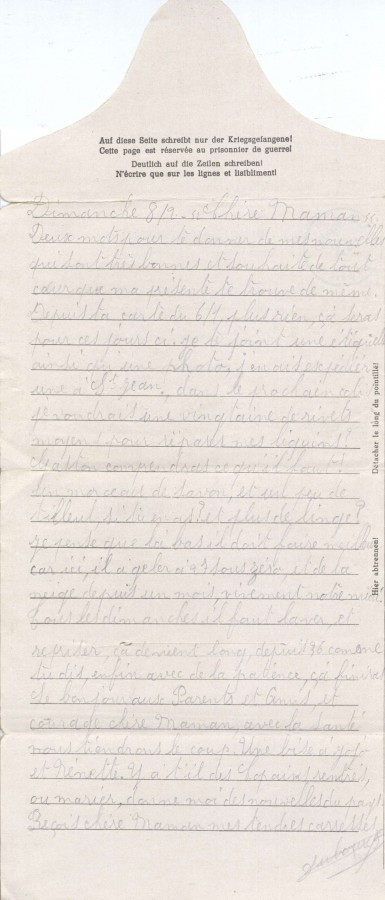 Auf diese Seite schreibt nur der Kriegsgefangene!
Cette page est réservée au prisonnier de guerre!
Deutlich auf die Zeilen schreiben!
N'écrire que sur les lignes et lisiblement!
Dimanche 8/2 Chère Maman
Deux mots pour te donner de mes nouvelles
qui sont très bonnes et souhaite de tout
cœur que ma présente te trouve de même.
Depuis ta carte du 6/1 plus rien, ça sera
pour ces jours ci. je te joint une étiquette
ainsi qu'une photo, j'en ai expédié
une à St Jean, dans le prochain colis
je voudrais une vingtaine de rivets
moyens pour réparer mes
Gaston comprendras ce qu'il faut!
un morceau de savon, et un peu de
et plus de linge?
je pense que là bas il doit faire meilleur
car ici, il a geler à 23 sous zéro et de la
neige depuis un mois, vivement notre midi
Tous les dimanches il faut laver, et
repriser, ça devient long, depuis 36 comme
tu dis, enfin avec de la patience, ça finira
le bonjour aux Parents et Amis et
courage chère Maman, avec la santé
nous tiendrons le coup. Une bise à
et Nénette. Y a t'il des Copains rentrés,
ou mariés, donne moi des nouvelles du pays
Reçois chère Maman mes tendres caresses
Detacher le long du pointillé!
Hier abtrennen!